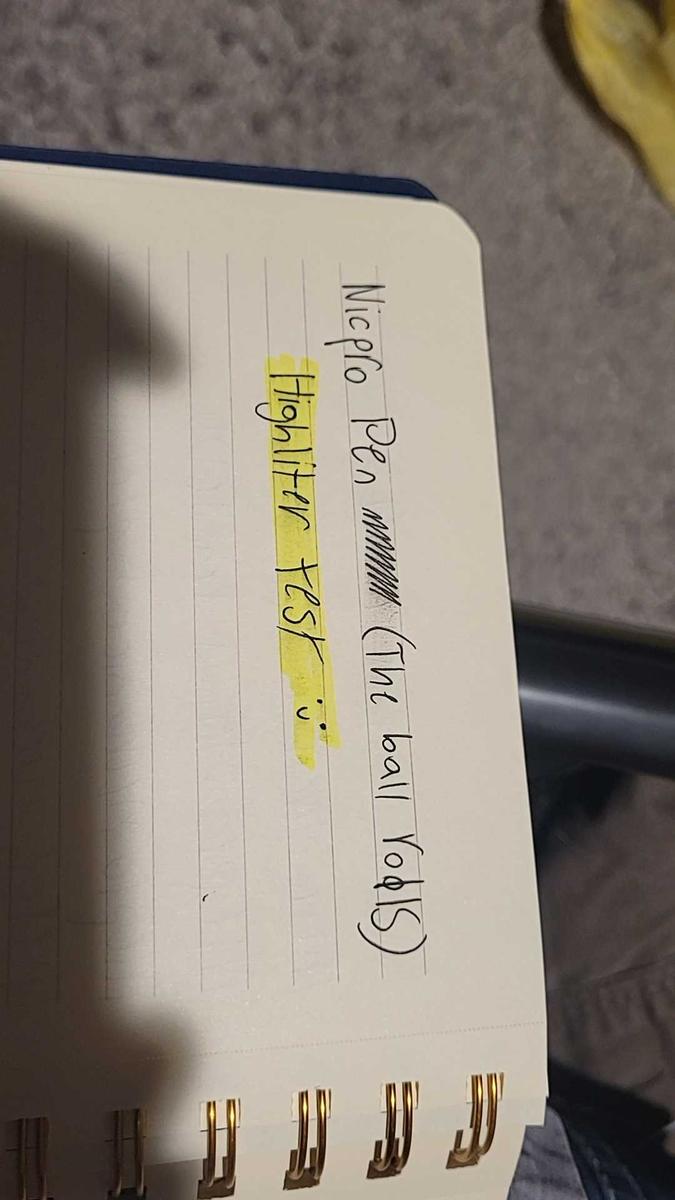 Nicpro Pen (The ball rolls)
Highliter test :)